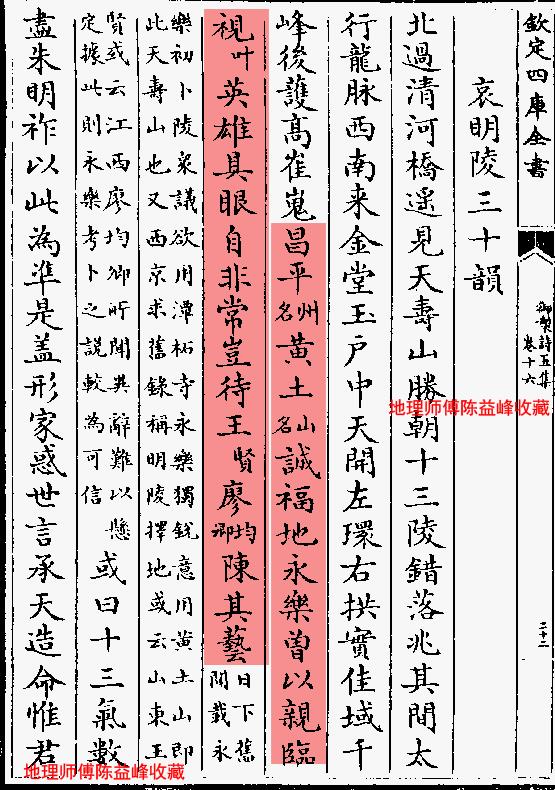 欽定四庫全書
御製詩五集
卷十六
二十二
哀明陵三十韻
北過清河橋遥見天壽山勝朝十三陵錯落兆其間太
行龍脉西南來金堂玉户中天開左環右拱實佳域千
峰後護髙崔嵬昌平州名黄土山名誠福地永樂曾以親臨
視叶英雄具眼自非常豈待王賢廖均卿陳其藝日下舊聞載永
樂初卜陵衆議欲用潭柘寺永樂獨銳意用黄土山即
此天壽山也又西京求舊錄稱明陵擇地或云山東王
賢或云江西廖均卿所聞異辭難以懸
定據此則永樂考卜之說較為可信
或曰十三氣數
盡朱明祚以此為準是盖形家惑世言承天造命惟君
地理师傅陈益峰收藏
地理师傅陈益峰收藏